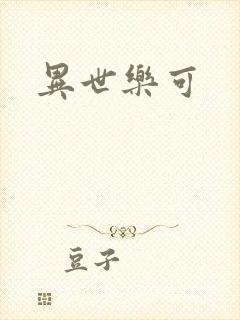 異世樂可
豆子